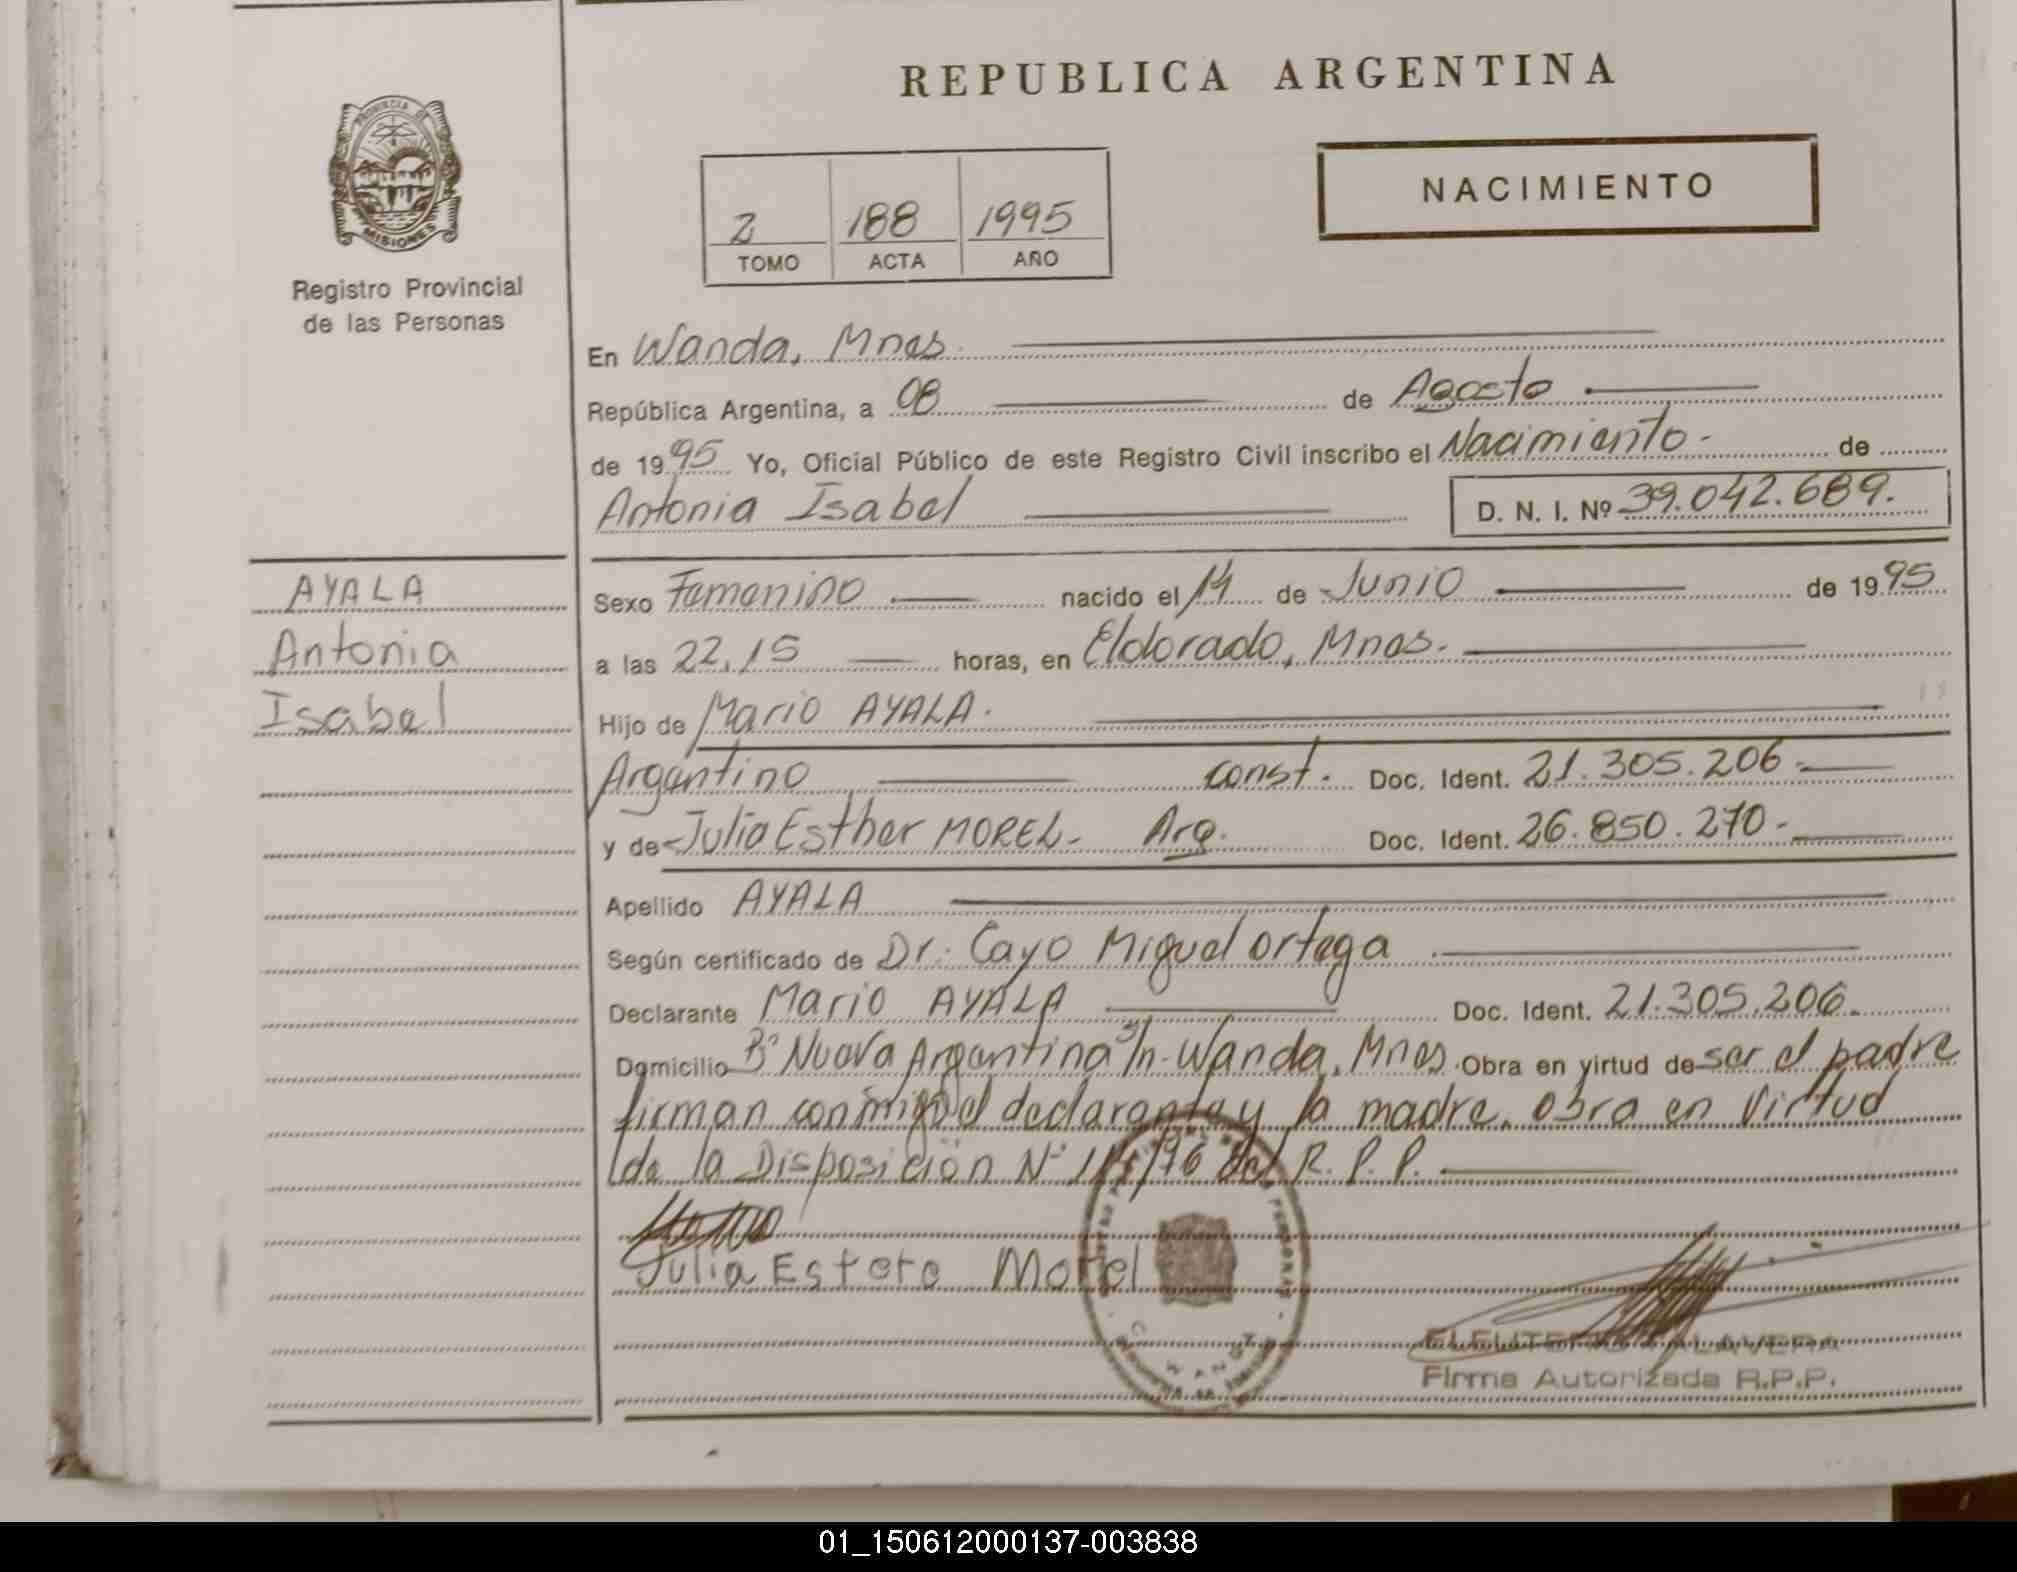 REPUBLICA ARGENTINA
PROVINCIA DE
MISIONES
Registro Provincial
de las Personas
NACIMIENTO
2 188 1995
TOMO ACTA AÑO
En Wanda, Mnes.
República Argentina, a 08 de Agosto
de 1995 Yo, Oficial Público de este Registro Civil inscribo el Nacimiento - de
Antonia Isabel D. N. I. Nº 39.042.689.
AYALA
Antonia
Isabel
Sexo Femenino nacido el 14 de Junio de 1995
a las 22,15 horas, en Eldorado, Mnes.
Hijo de Mario AYALA.
Argentino const. Doc. Ident. 21.305.206.
y de Julia Esther MOREL- Arg. Doc. Ident. 26.850.270.
Apellido AYALA
Según certificado de Dr. Cayo Miguel Ortega
Declarante Mario AYALA Doc. Ident. 21.305.206.
Domicilio Bº Nueva Argentina S/n-Wanda, Mnes. Obra en virtud de ser el padre
firman conmigo el declarante y la madre. obra en Virtud
de la Disposición Nº /96 del R. P. P.
Julia Estero Morel
ELEUTERIO TALAVERA
Firma Autorizada R.P.P.
01_150612000137-003838